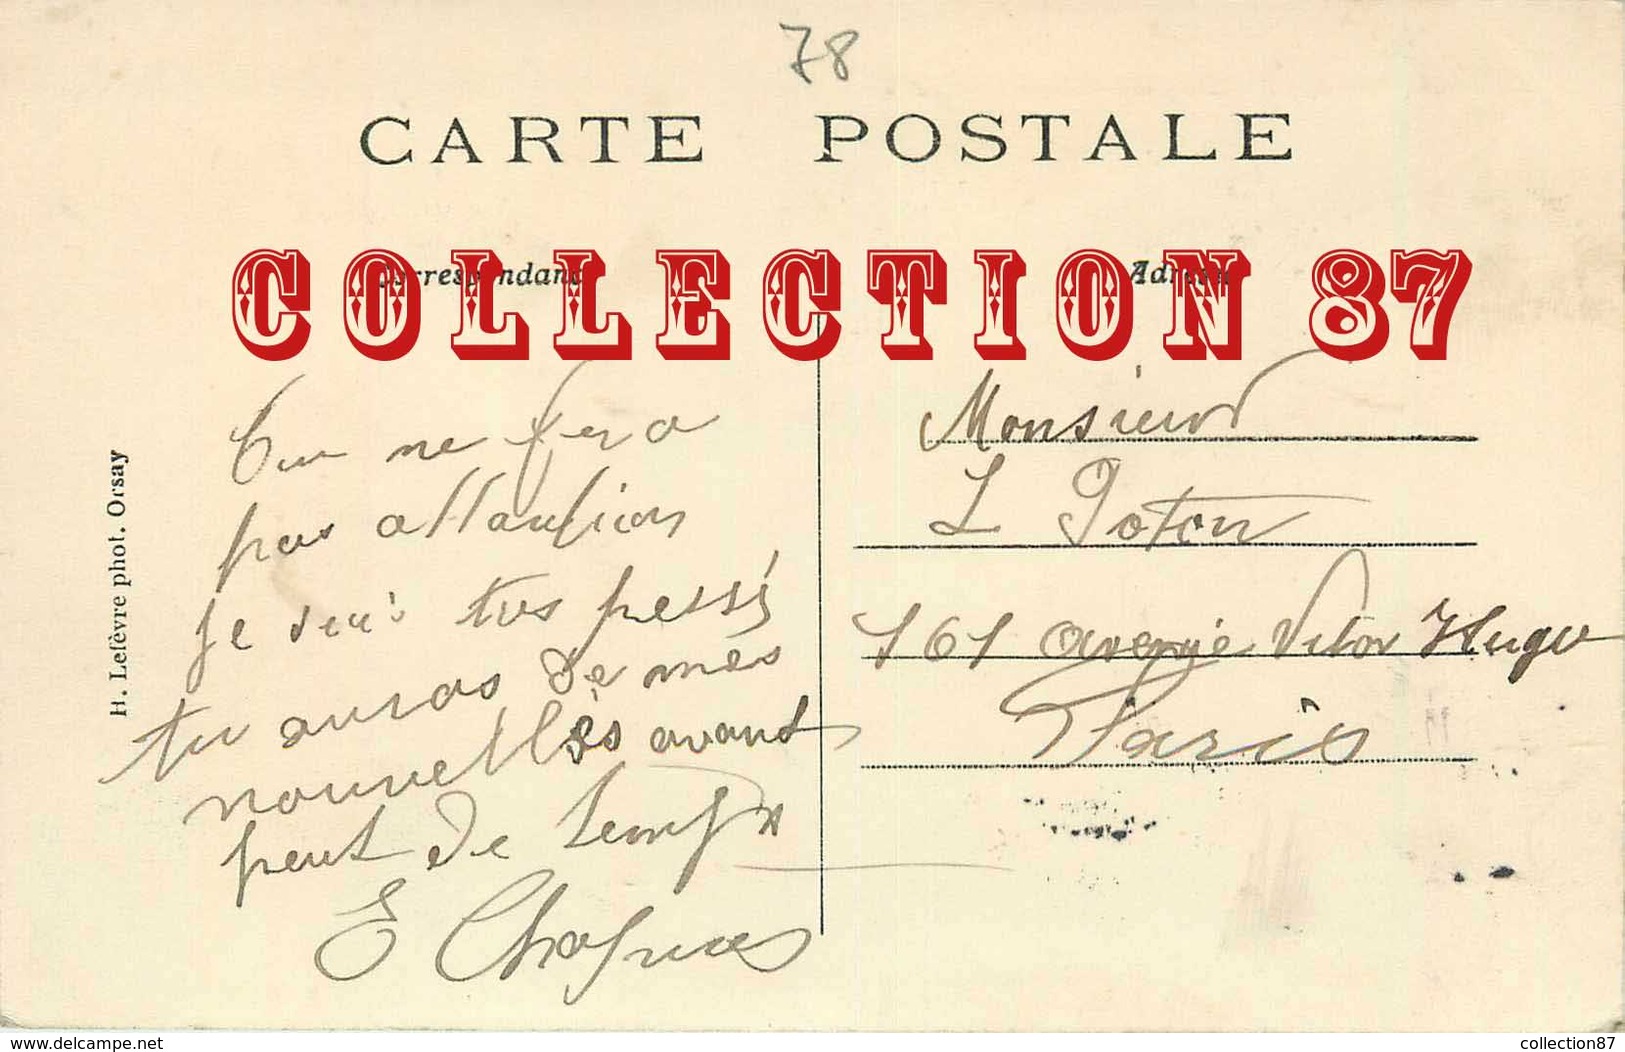 78
CARTE POSTALE
Correspondance
Adresse
COLLECTION 87
H. Lefèvre phot. Orsay
Tu ne fera
pas attanfion
je suis tres pressé
tu auras de mes
nouvelles avant
peut de temps
E
Monsieur
L Poton
161 avenue Victor Hugo
Paris
www.delcampe.net
collection87